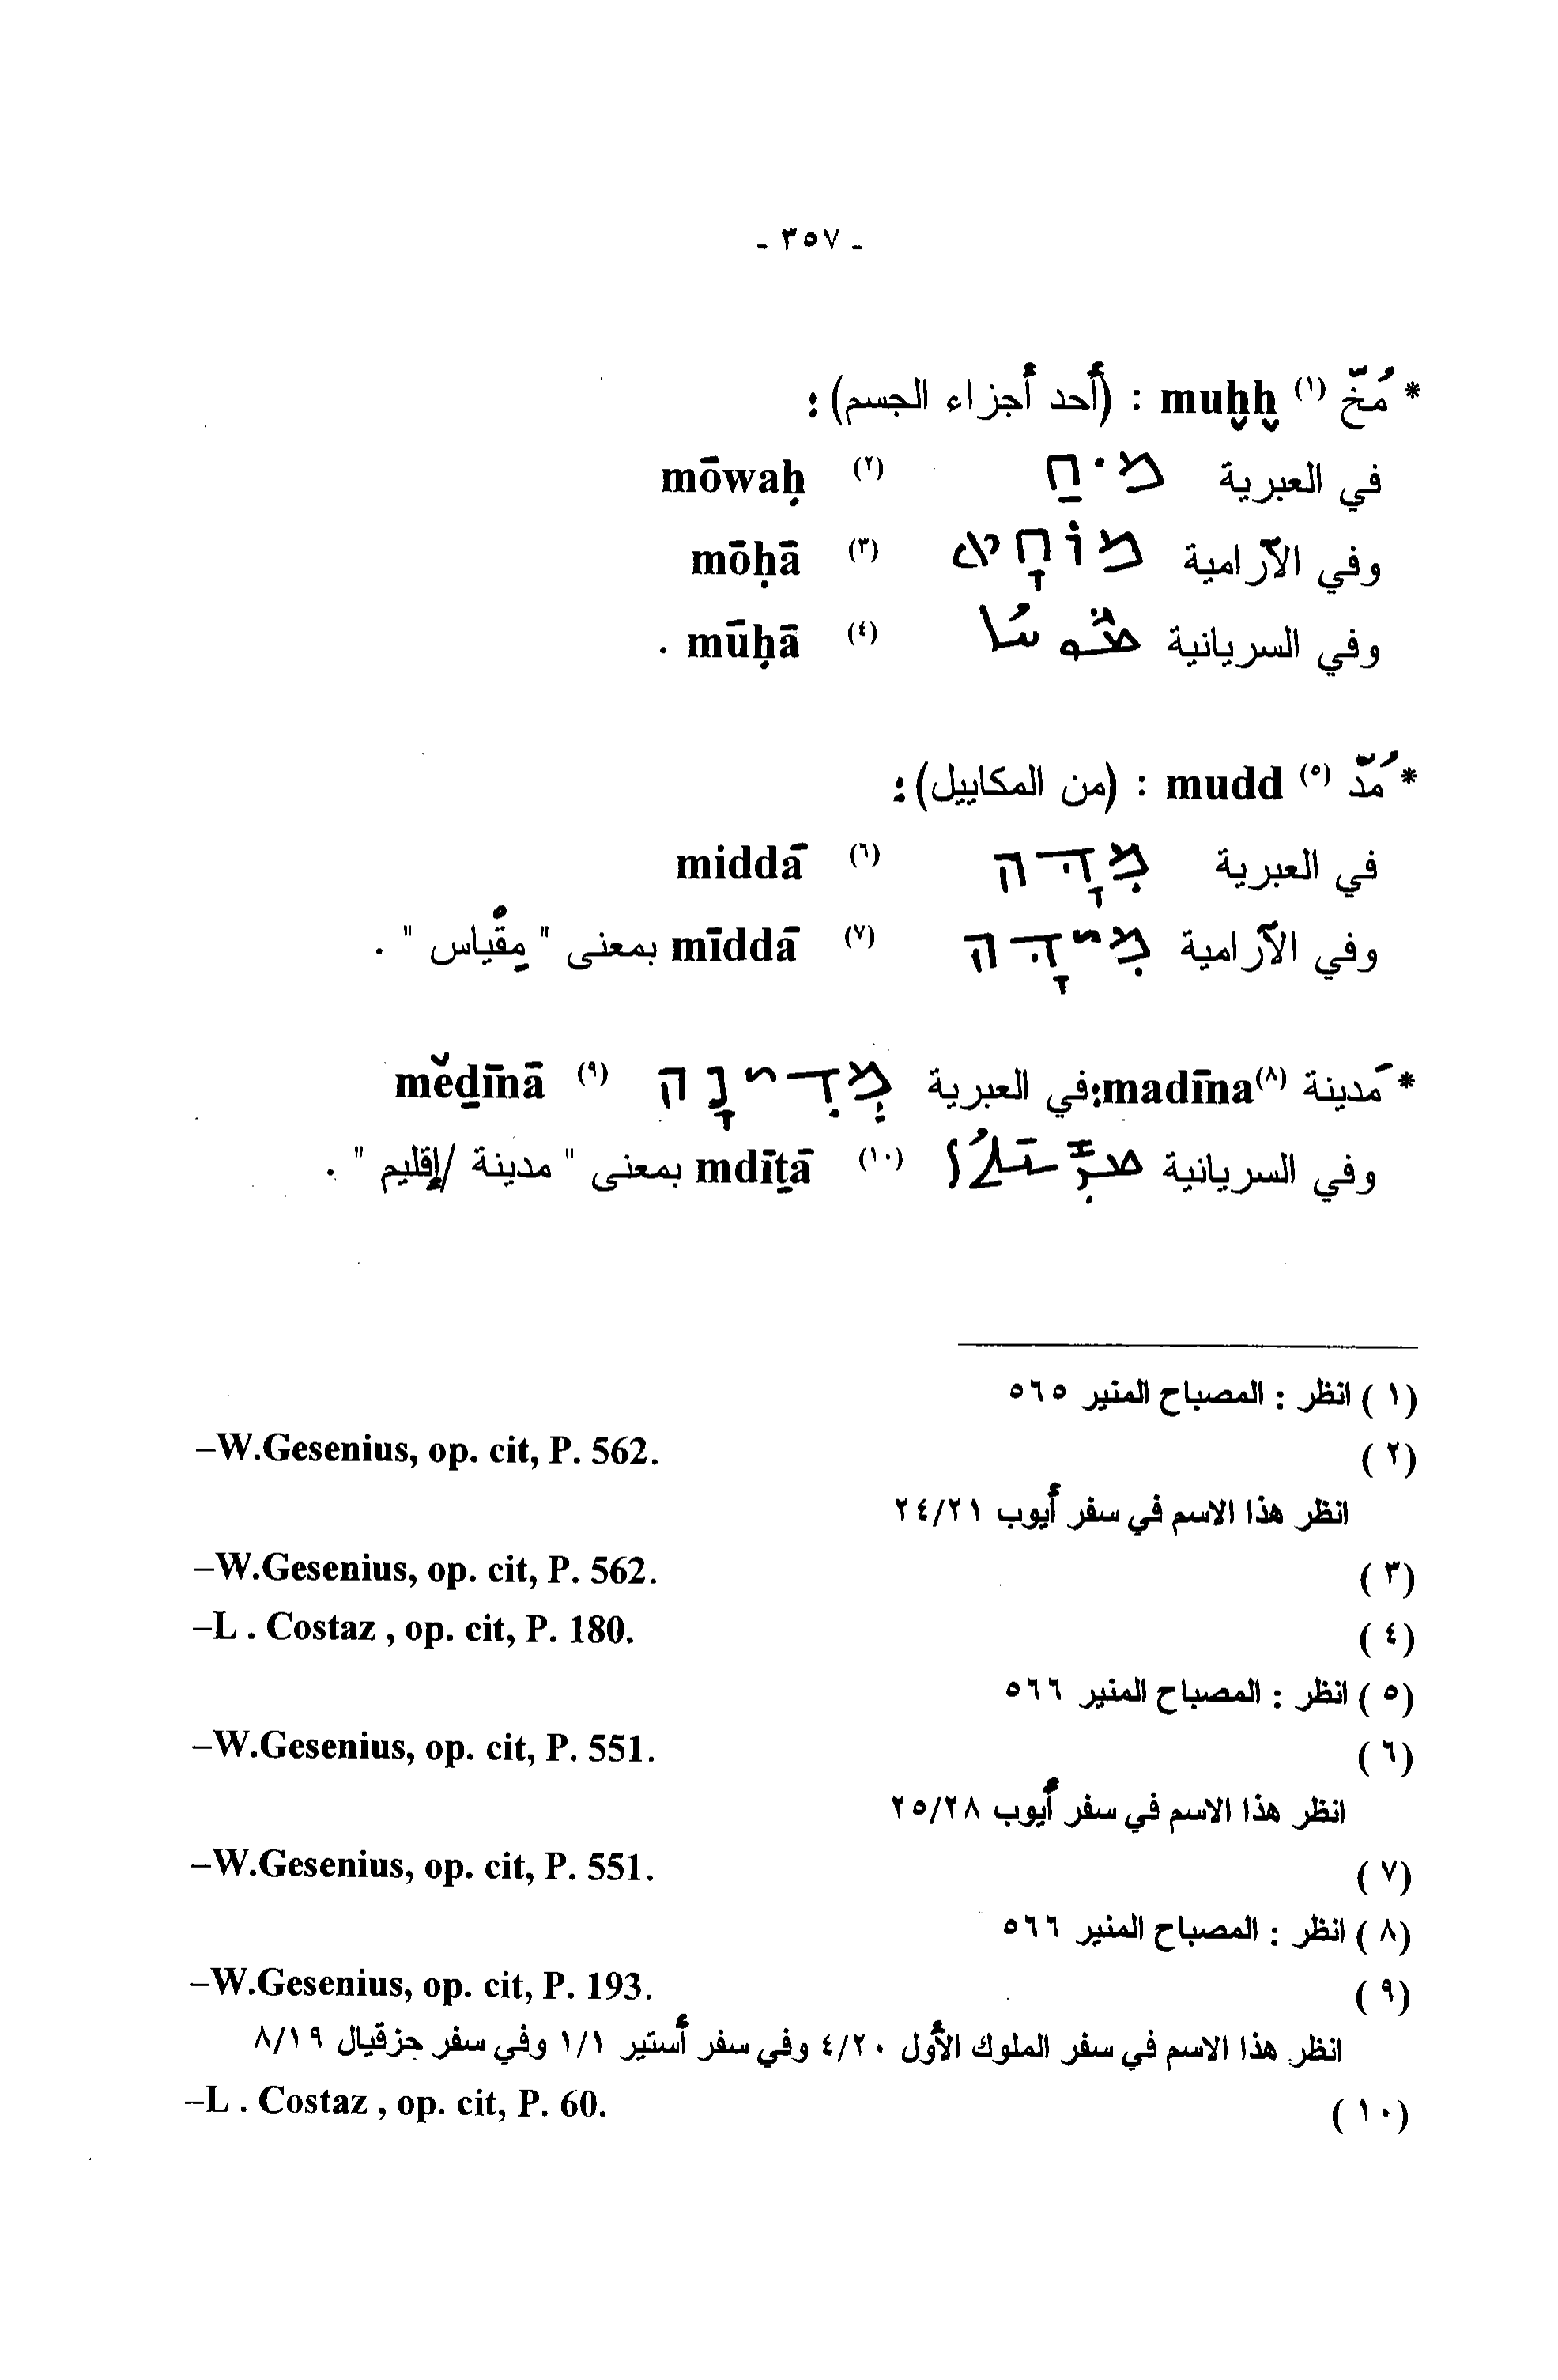 - ٣٥٧ -
* مُخّ (١) muḫḫ : (أحد أجزاء الجسم) :
في العبرية מֹחַ (٢) mōwaḥ
وفي الآرامية מוֹחָא (٣) mōḥā
وفي السريانية ܡܘܚܐ (٤) mūḥā .
* مُدّ (٥) mudd : (من المكاييل) :
في العبرية מִדָּה (٦) middā
وفي الآرامية מִידָּה (٧) mīddā بمعنى " مِقْياس " .
* مَدينة (٨) madīna : في العبرية מְדִינָה (٩) mĕḏīnā
وفي السريانية ܡܕܝܢܬܐ (١٠) mdīṯā بمعنى " مدينة /إقليم " .
(١) انظر : المصباح المنير ٥٦٥
(٢) –W.Gesenius, op. cit, P. 562.
انظر هذا الاسم في سفر أيوب ٢٤/٢١
(٣) –W.Gesenius, op. cit, P. 562.
(٤) –L . Costaz , op. cit, P. 180.
(٥) انظر : المصباح المنير ٥٦٦
(٦) –W.Gesenius, op. cit, P. 551.
انظر هذا الاسم في سفر أيوب ٢٥/٢٨
(٧) –W.Gesenius, op. cit, P. 551.
(٨) انظر : المصباح المنير ٥٦٦
(٩) –W.Gesenius, op. cit, P. 193.
انظر هذا الاسم في سفر الملوك الأول ٤/٢٠ وفي سفر أستير ١/١ وفي سفر حزقيال ٨/١٩
(١٠) –L . Costaz , op. cit, P. 60.